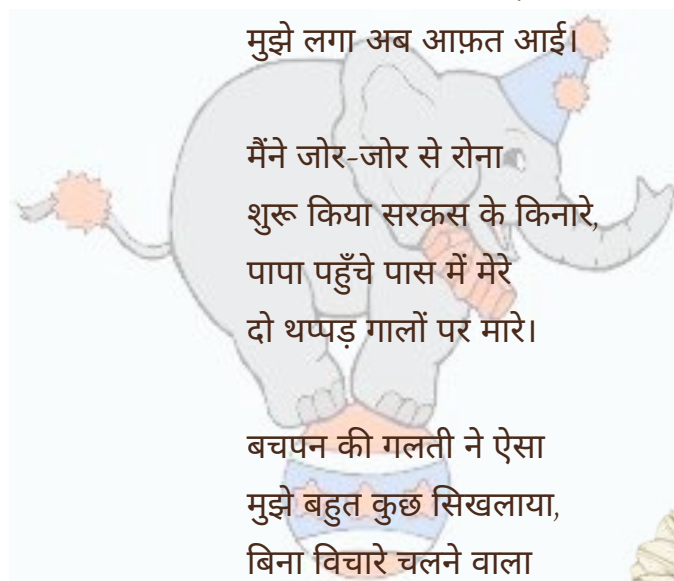 मुझे लगा अब आफ़त आई।
मैंने जोर-जोर से रोना
शुरू किया सरकस के किनारे,
पापा पहुँचे पास में मेरे
दो थप्पड़ गालों पर मारे।
बचपन की गलती ने ऐसा
मुझे बहुत कुछ सिखलाया,
बिना विचारे चलने वाला